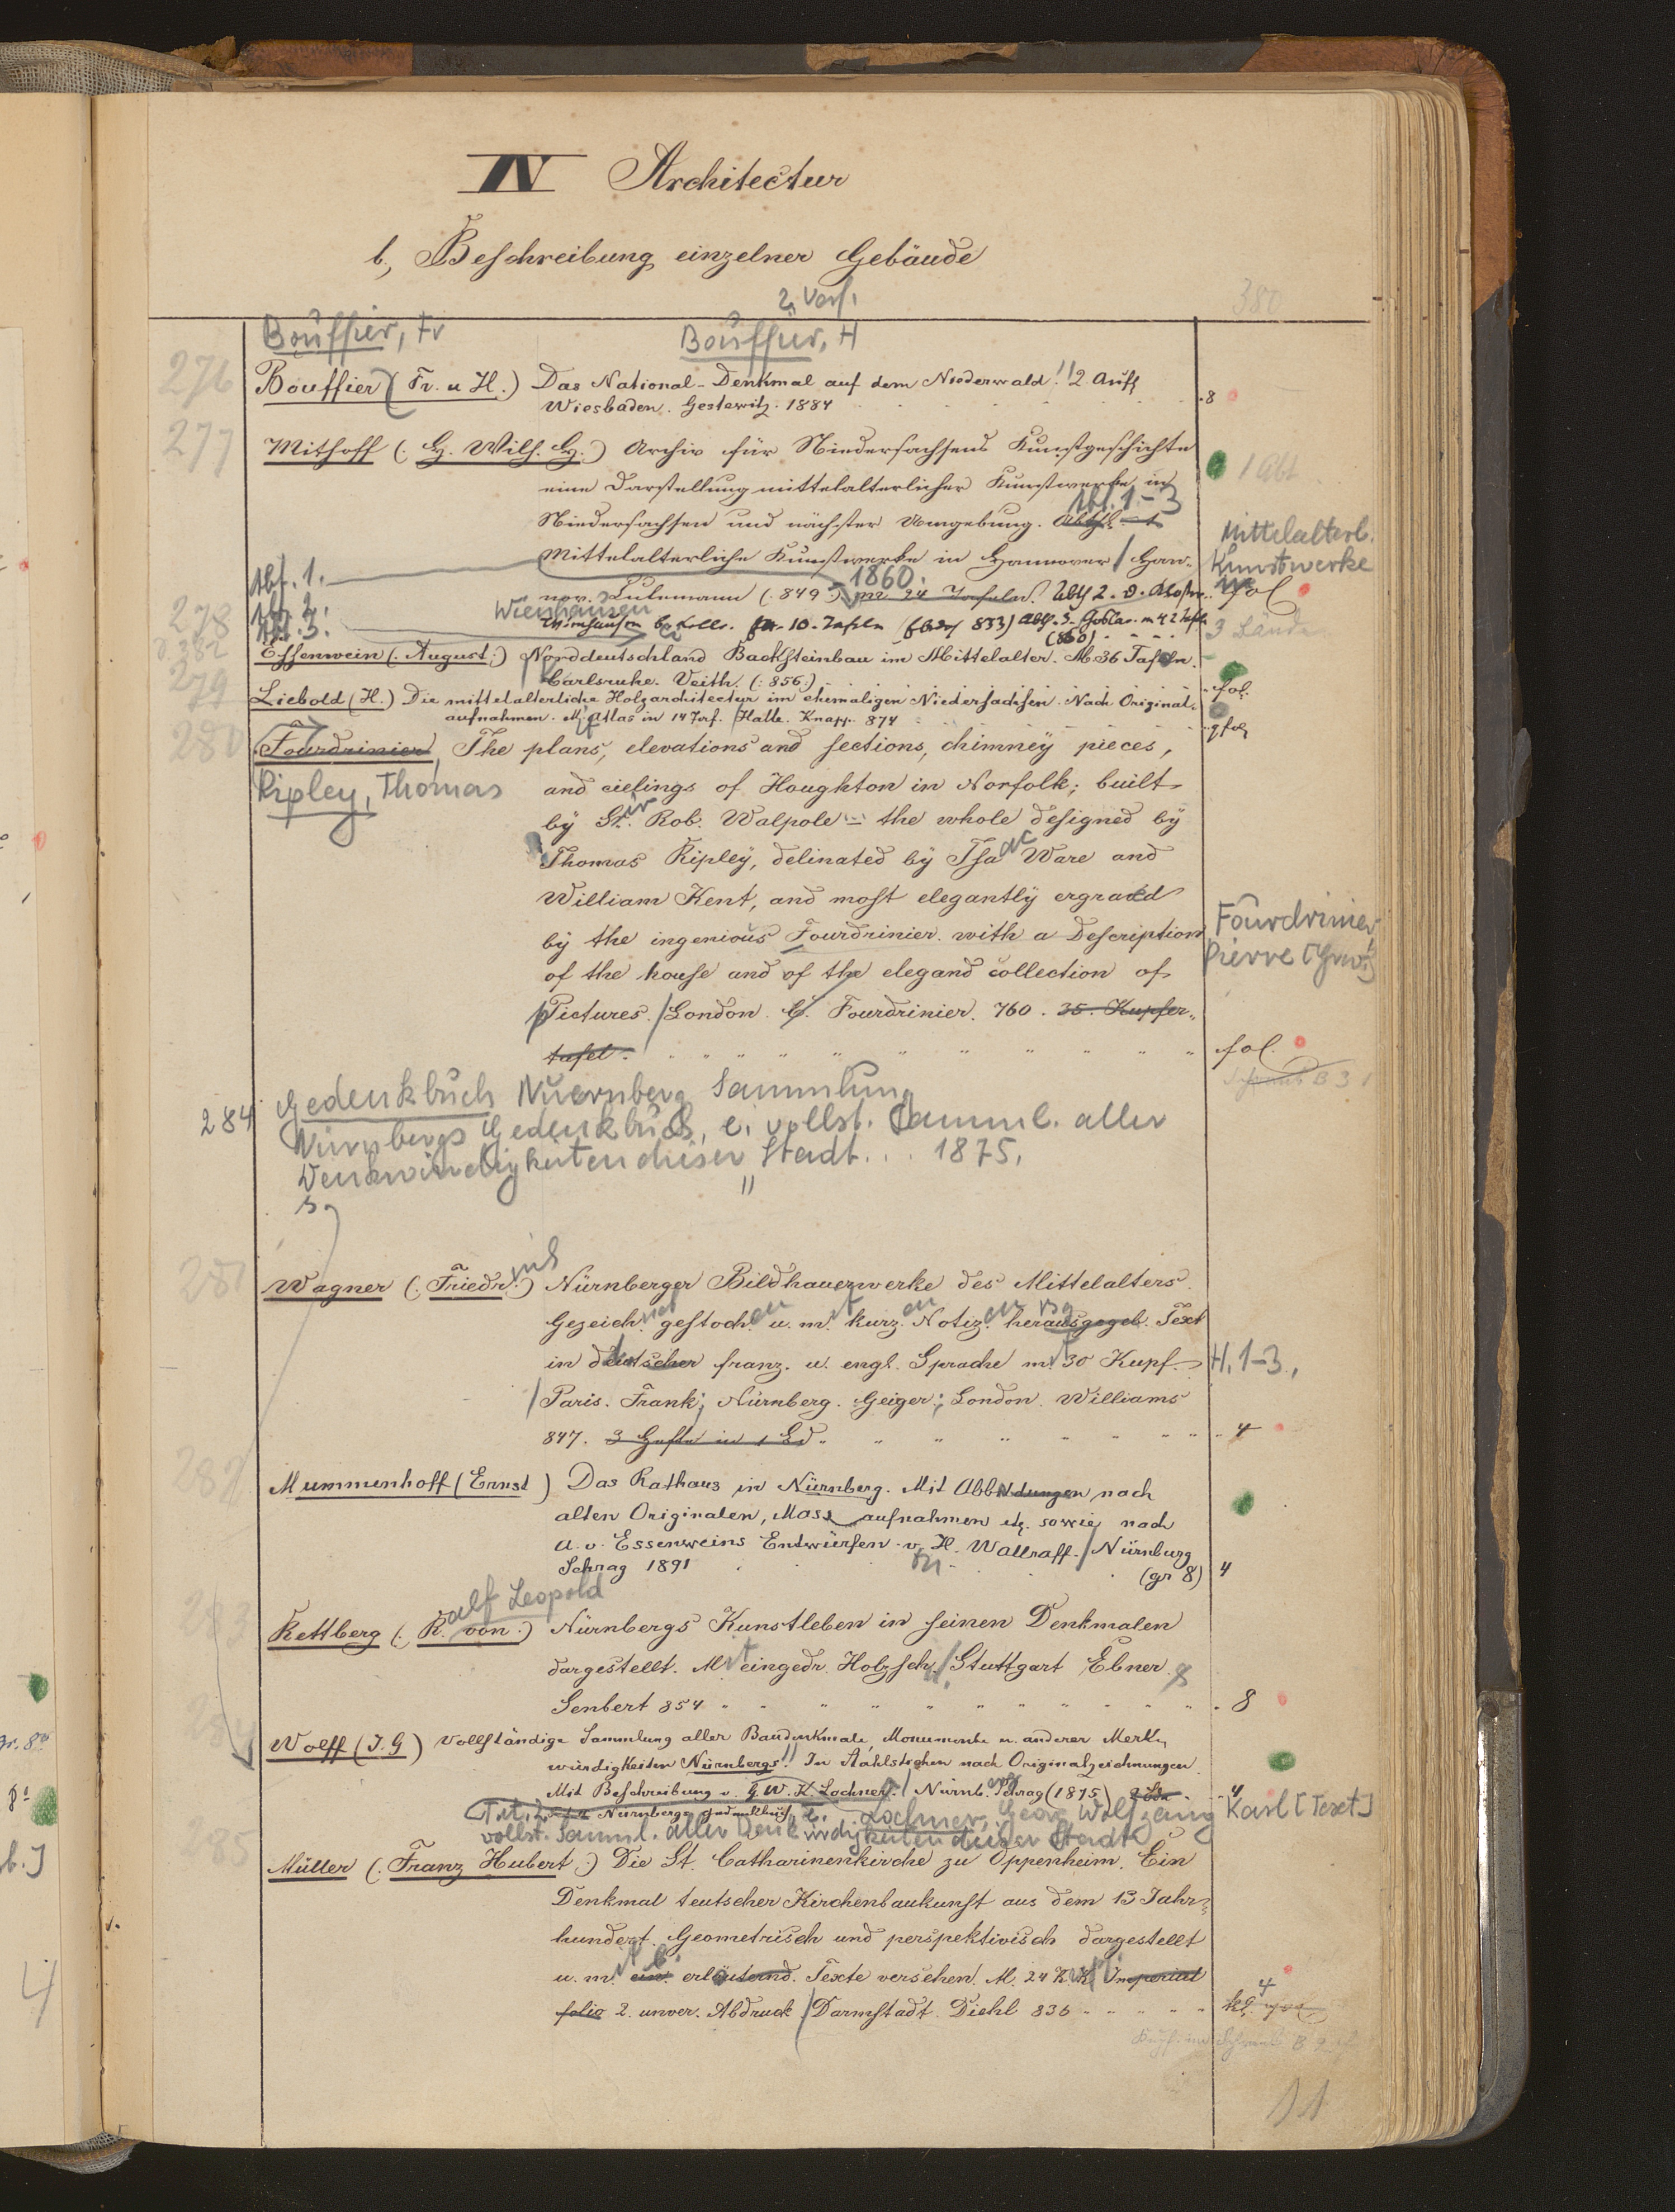 IV Architectur
b, Beschreibung einzelner Gebäude
2. Verf.
380
Bouffier, Fr Bouffier, H
276 Bouffier (Fr. u H.) Das National-Denkmal auf dem Niederwald!! 2 Aufl
Wiesbaden. Gestewitz. 1884 8
277 Mithoff (: H. Wilh. H.) Archiv für Niedersachsens Kunstgeschichte
1 Abt
eine Darstellung mittelalterlicher Kunstwerke in
Abt. 1-3
Niedersachsen und nächster Umgebung. Abthl 1
Mittelalterl.
Mittelalterliche Kunstwerke in Hannover / Han-
Kunstwerke
Abt. 1. 1860.
nov. Culemann (849.) m 24 Tafeln. Abth 2. D. Kloster fol
278 Abt. 2. Wienhausen
Abt. 3. Wienhausen b. Celle. m. 10. Tafeln (853) Abth. 3. Goslar. m 42 Tafln
3 Bände
(860)
d. 382 Essenwein (. August.) Norddeutschland Backsteinbau im Mittelalter. M. 36 Tafeln.
Carlsruhe. Veith. (: 856.) fol.
279 Liebold (H.) Die mittelalterliche Holzarchitectur im ehemaligen Niedersachsen. Nach Original-
aufnahmen. M. Atlas in 14 Taf. / Halle. Knapp. 874 qfol
280 Fourdrinier, The plans, elevations and sections, chimney pieces,
Ripley, Thomas and cielings of Houghton in Norfolk; built
by Sir. Rob. Walpole - the whole designed by
Thomas Ripley, delinated by Isaac Ware and
William Kent, and most elegantly ergraved
Fourdrinier,
by the ingenious Fourdrinier. with a Description
Pierre
of the house and of the elegand collection of
Pictures. / London. C. Fourdrinier. 760. 35. Kupfer-
tafel. fol.
284 Gedenkbuch Nuernberg Sammlung
Nürnbergs Gedenkbuch, e. vollst. Samml. aller
Denkwürdigkeiten dieser Stadt... 1875.
s.
281 Wagner (: Friedr.) Nürnberger Bildhauerwerke des Mittelalters.
Gezeichnet gestochen u. mit kurzen Notizen herausgegeb. Text
in deutscher franz. u. engl. Sprache mit 30 Kupf. H. 1-3.
/ Paris. Frank; Nürnberg. Geiger; London. Williams
847. 3 Hefte in 1 Bd. 4
282 Mummenhoff (Ernst) Das Rathaus in Nürnberg. Mit Abbildungen nach
alten Originalen, Mass aufnahmen etc. sowie nach
A. v. Essenweins Entwürfen v. H. Wallraff. / Nürnburg
Schrag 1891 (gr 8) 4
alf Leopold
283 Rettberg (: R. von.) Nürnbergs Kunstleben in seinen Denkmalen
dargestellt. Mit eingedr. Holzsch. / Stuttgart Ebner &
Senbert 854 8
284 Wolff (J. G) Vollständige Sammlung aller Baudenkmale, Monumente u. anderer Merk-
würdigkeiten Nürnbergs!! In Stahlstichen nach Originalzeichnungen.
Mit Beschreibung v. G. W. K. Lochner. / Nürnb. Schrag (1875) 2 Bde 4
Nürnbergs Gedenkbuch, e. Lochner, Georg Wolfgang Karl [Text]
vollst. Samml. aller Denkwürdigkeiten dieser Stadt
285 Müller (: Franz Hubert.) Die St. Catharinenkirche zu Oppenheim. Ein
Denkmal teutscher Kirchenbaukunst aus dem 13 Jahr-
hundert. Geometrisch und perspektivisch dargestellt
u. mit ein erläuternd. Texte versehen. M. 24 K. K. Imperial
folio 2. unver. Abdruck / Darmstadt. Diehl 836 4
11